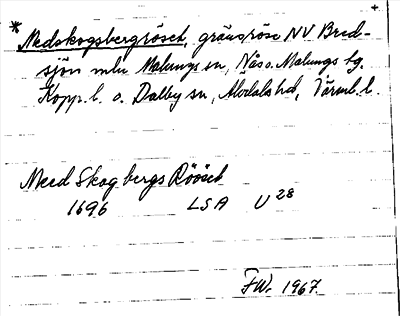 * Medskogsbergröset, gränsröse NV Bred-
sjön mln Malungs sn, Nås o. Malungs tg.
Kopp. l. o. Dalby sn, Älvdals hd, Värml. l.
Med Skog bergs Röösek
1696 LSA U 28
FW. 1967.